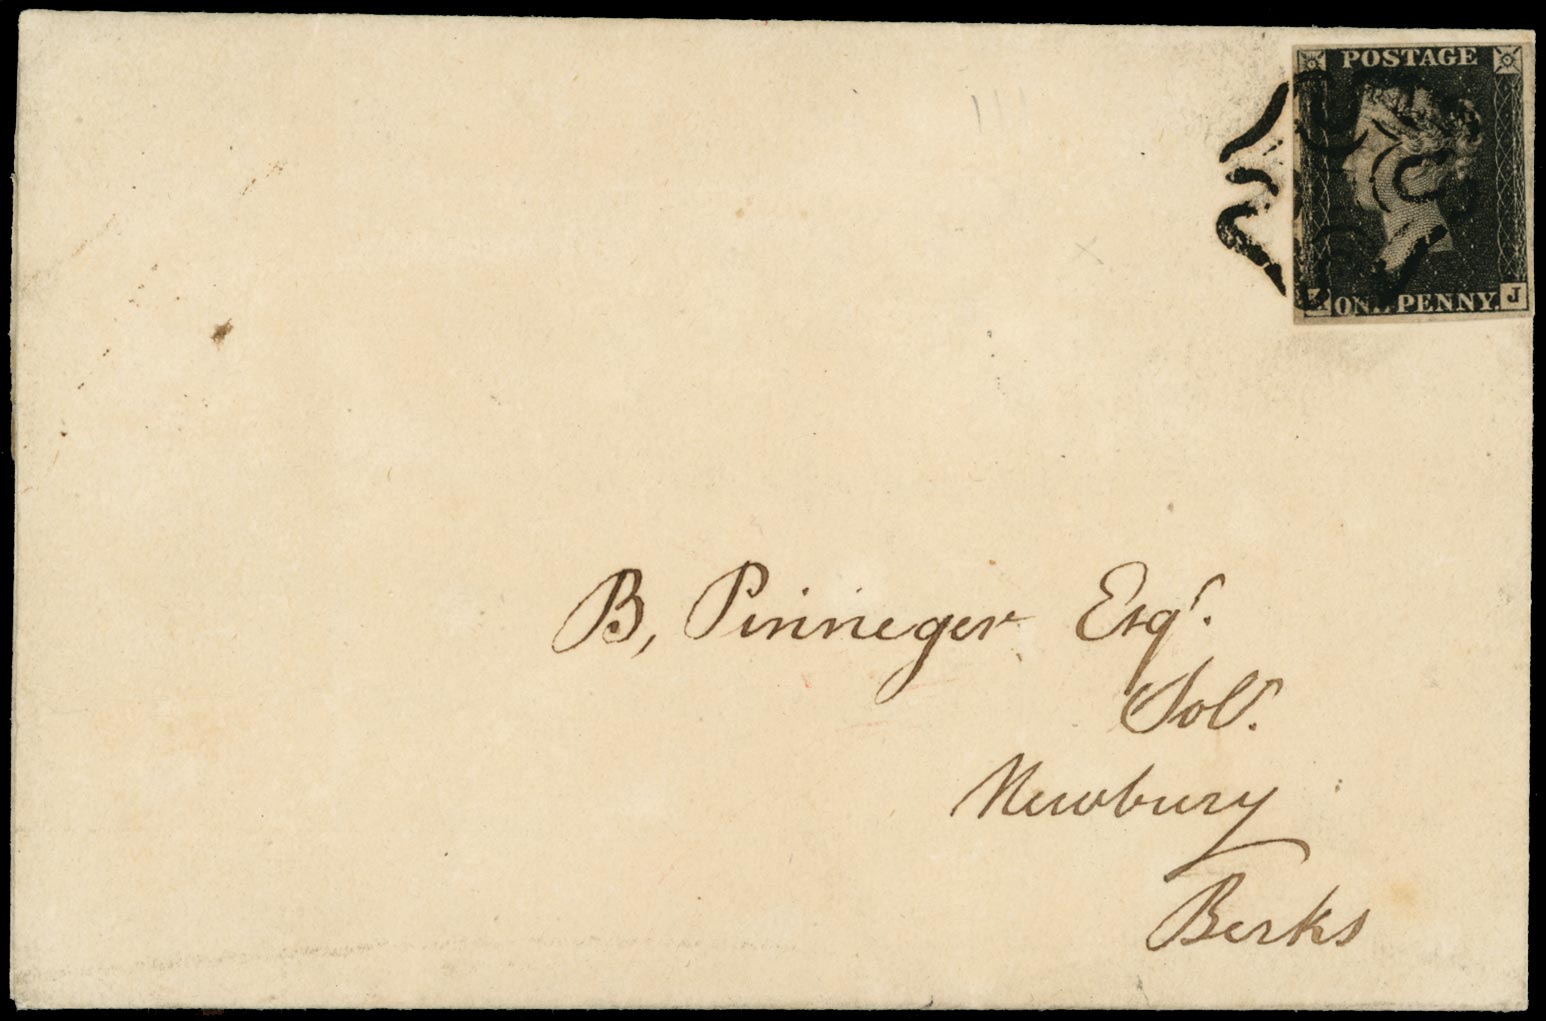 POSTAGE
ONE PENNY.
J
B, Pinneger Esqr.
Solr.
Newbury
Berks